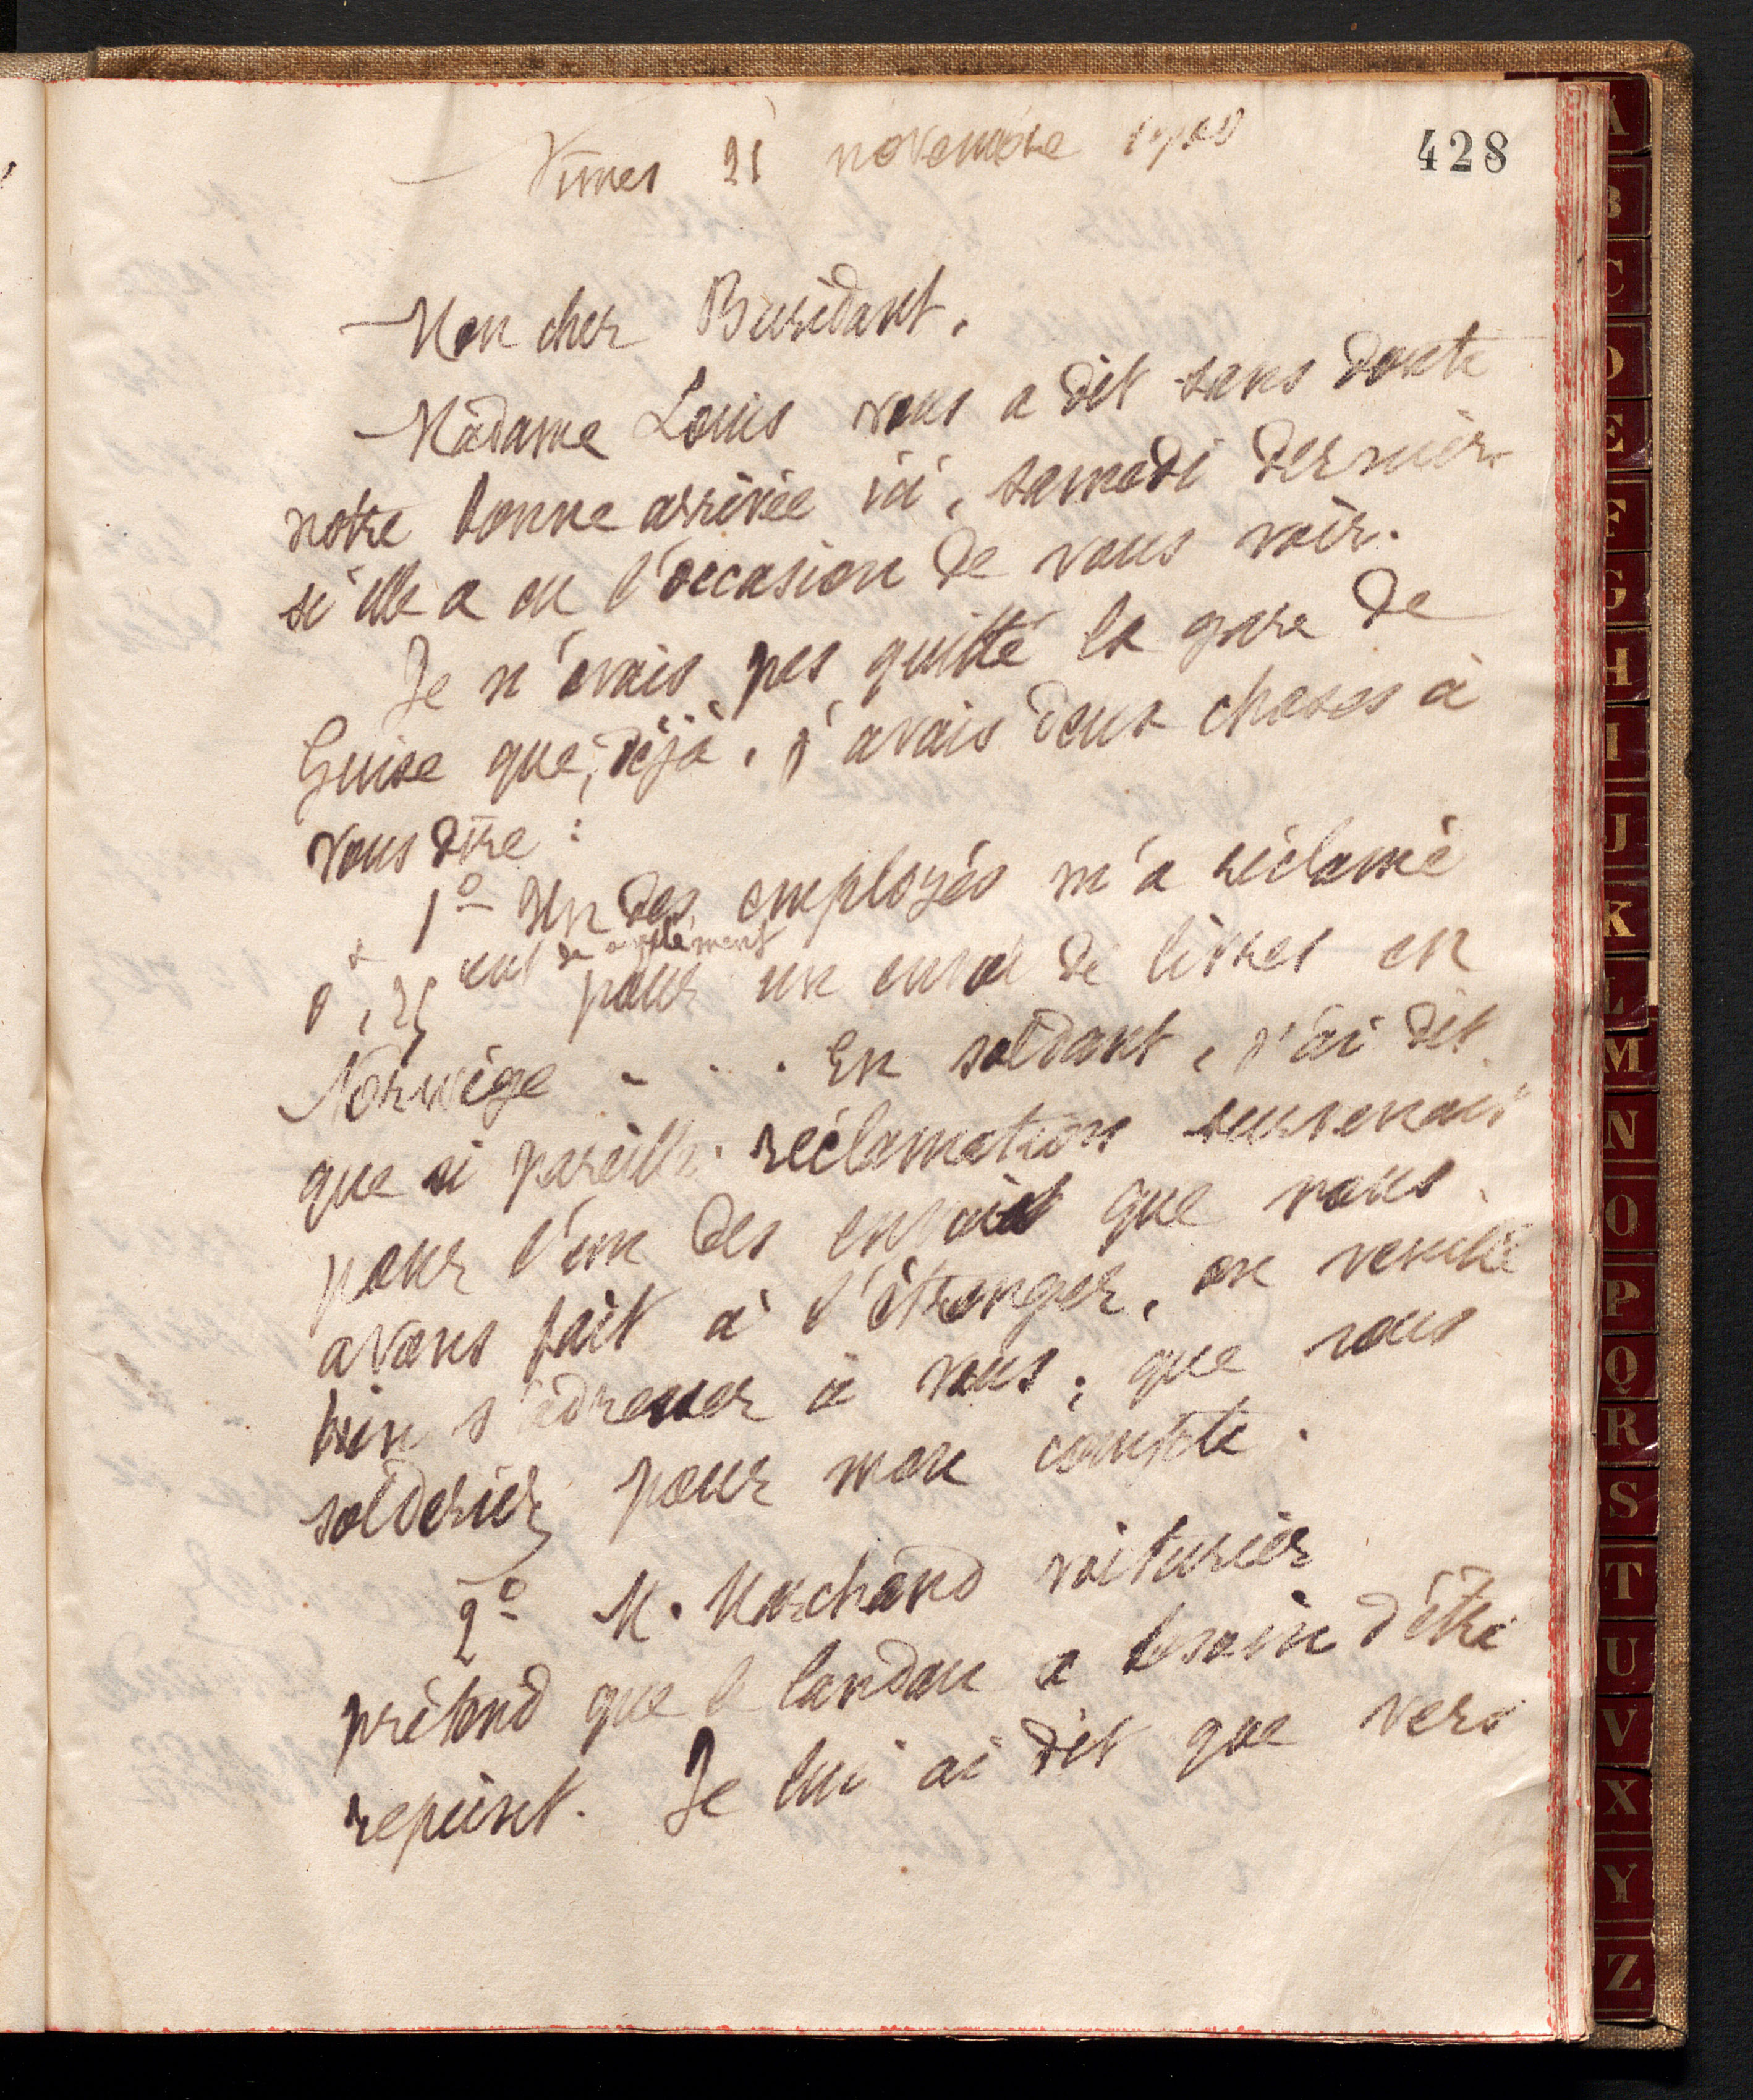 428
Nîmes 21 novembre 1900
Mon cher Buridant,
Madame Louis vous a dit sans doute
notre bonne arrivée ici, samedi dernier
si elle a eu l'occasion de vous voir.
Je n'avais pas quitté la gare de
Guise que, déjà, j'avais deux choses à
vous dire :
1º Un des employés m'a réclamé
de supplément
0f,25 pour un envoi de livres en
Norwège . . . En soldant, j'ai dit
que si pareille réclamation survenait
pour l'un des envois que vous
avons fait à l'étranger, on veuille
bien s'adresser à vous ; que vous
solderiez pour mon compte.
2º M. Marchand voiturier
prétend que le landau a besoin d'être
repeint. Je lui ai dit que vers
A
B
C
D
E
F
G
H
I
J
K
L
M
N
O
P
Q
R
S
T
U
V
X
Y
Z